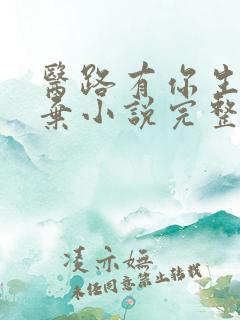 醫路有你生
棄小說完整
凌亦嫵
未任同意禁止轉載